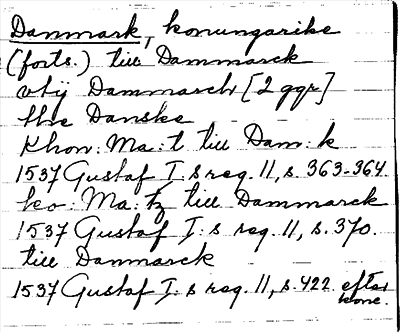 Danmark, konungarike
(forts.) till Dammarck
vtij Dammarch [2 ggr]
the Danske
Khon: Ma: t till Dam: k
1537 Gustaf I: s reg. 11, s. 363-364.
ko: Ma: tz till Dammarck
1537 Gustaf I: s reg. 11, s. 370.
till Danmarck
1537 Gustaf I: s reg. 11, s. 422. efter
konc.